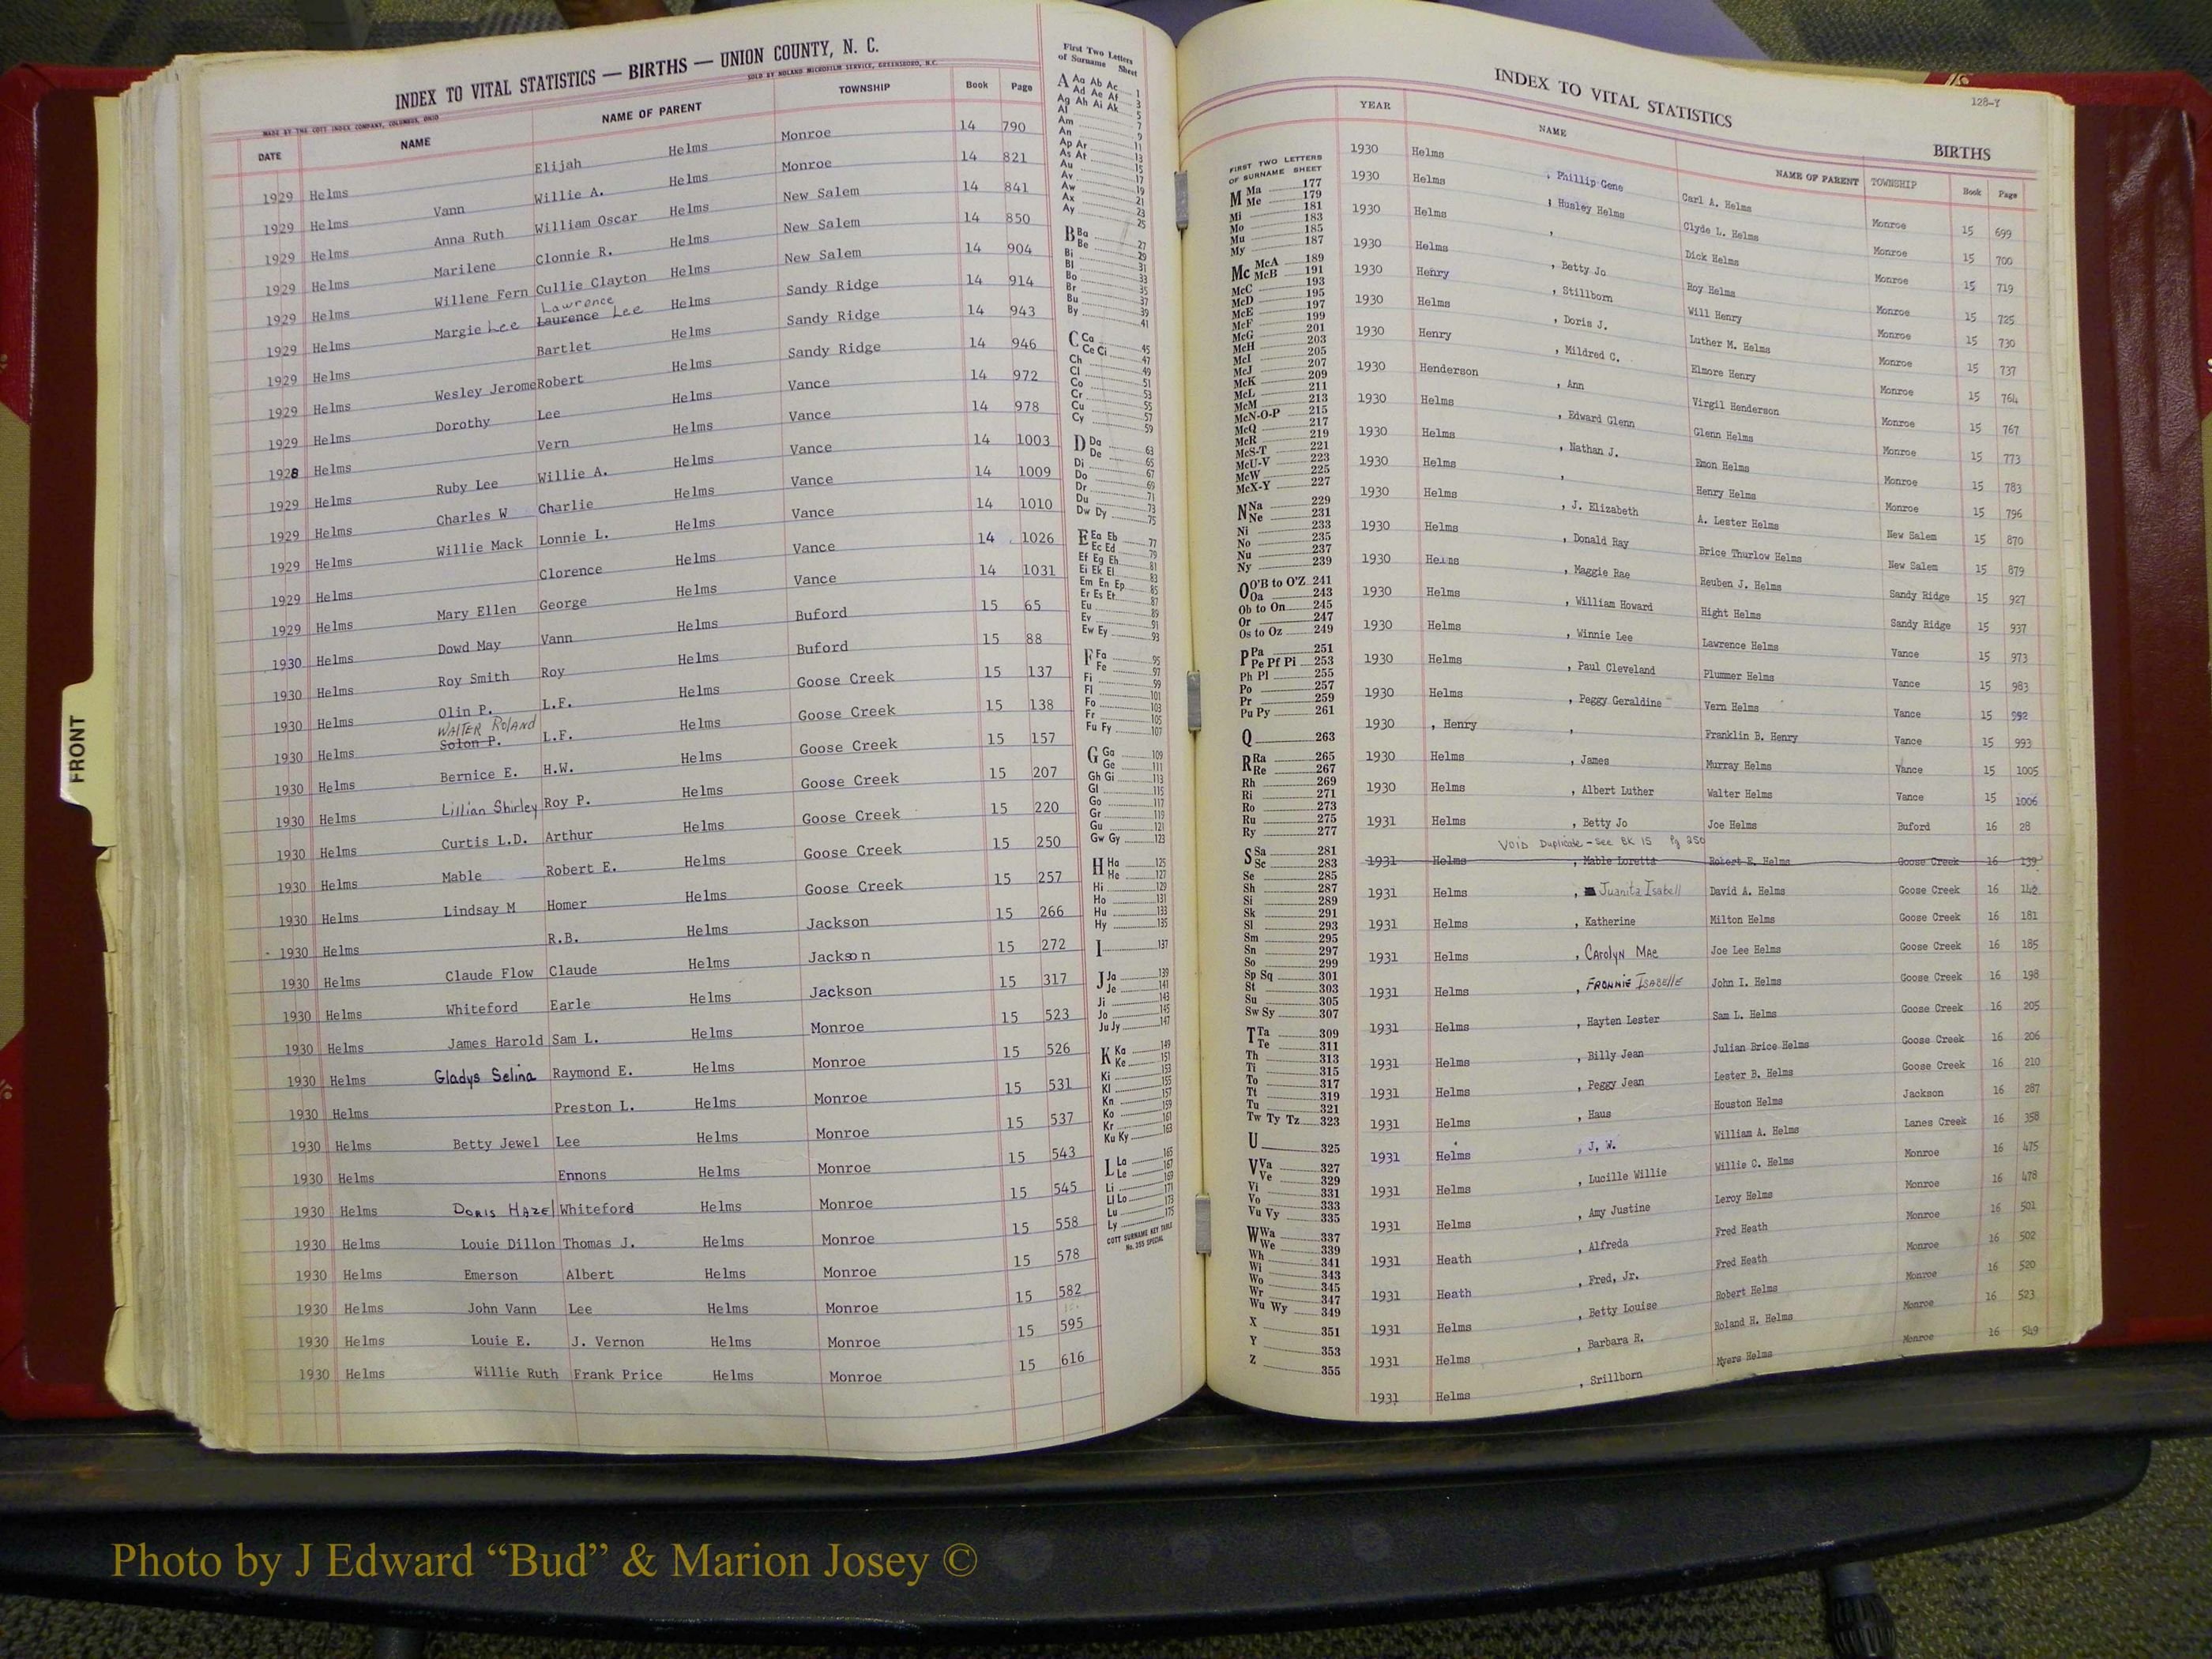 INDEX TO VITAL STATISTICS — BIRTHS — UNION COUNTY, N. C.
MADE BY THE COTT INDEX COMPANY, COLUMBUS, OHIO SOLD BY ROLAND MICROFILM SERVICE, GREENSBORO, N.C.
DATE NAME NAME OF PARENT TOWNSHIP Book Page
1929 Helms Elijah Helms Monroe 14 790
1929 Helms Vann Willie A. Helms Monroe 14 821
1929 Helms Anna Ruth William Oscar Helms New Salem 14 841
1929 Helms Marilene Clonnie R. Helms New Salem 14 850
1929 Helms Willene Fern Cullie Clayton Helms New Salem 14 904
Lawrence
1929 Helms Margie Lee Laurence Lee Helms Sandy Ridge 14 914
1929 Helms Bartlet Helms Sandy Ridge 14 943
1929 Helms Wesley Jerome Robert Helms Sandy Ridge 14 946
1929 Helms Dorothy Lee Helms Vance 14 972
1928 Helms Vern Helms Vance 14 978
1929 Helms Ruby Lee Willie A. Helms Vance 14 1003
1929 Helms Charles W Charlie Helms Vance 14 1009
1929 Helms Willie Mack Lonnie L. Helms Vance 14 1010
1929 Helms Clorence Helms Vance 14 1026
1929 Helms Mary Ellen George Helms Vance 14 1031
1930 Helms Dowd May Vann Helms Buford 15 65
1930 Helms Roy Smith Roy Helms Buford 15 88
1930 Helms Olin P. L.F. Helms Goose Creek 15 137
WALTER ROLAND
1930 Helms Solon P. L.F. Helms Goose Creek 15 138
1930 Helms Bernice E. H.W. Helms Goose Creek 15 157
1930 Helms Lillian Shirley Roy P. Helms Goose Creek 15 207
1930 Helms Curtis L.D. Arthur Helms Goose Creek 15 220
1930 Helms Mable Robert E. Helms Goose Creek 15 250
1930 Helms Lindsay M Homer Helms Goose Creek 15 257
1930 Helms R.B. Helms Jackson 15 266
1930 Helms Claude Flow Claude Helms Jackson 15 272
1930 Helms Whiteford Earle Helms Jackson 15 317
1930 Helms James Harold Sam L. Helms Monroe 15 523
1930 Helms Gladys Selina Raymond E. Helms Monroe 15 526
1930 Helms Preston L. Helms Monroe 15 531
1930 Helms Betty Jewel Lee Helms Monroe 15 537
1930 Helms Ennons Helms Monroe 15 543
1930 Helms DORIS HAZEl Whiteford Helms Monroe 15 545
1930 Helms Louie Dillon Thomas J. Helms Monroe 15 558
1930 Helms Emerson Albert Helms Monroe 15 578
1930 Helms John Vann Lee Helms Monroe 15 582
1930 Helms Louie E. J. Vernon Helms Monroe 15 595
1930 Helms Willie Ruth Frank Price Helms Monroe 15 616
FRONT
First Two Letters
of Surname Sheet
A Aa Ab Ac 1
Ad Ae Af 3
Ag Ah Ai Ak 5
Al 7
Am 9
An 11
Ap Ar 13
As At 15
Au 17
Av 19
Aw 21
Ax 23
Ay 25
B Ba 27
Be 29
Bi 31
Bl 33
Bo 35
Br 37
Bu 39
By 41
C Ca 45
Ce Ci 47
Ch 49
Cl 51
Co 53
Cr 55
Cu 57
Cy 59
D Da 63
De 65
Di 67
Do 69
Dr 71
Du 73
Dw Dy 75
E Ea Eb 77
Ec Ed 79
Ef Eg Eh 81
Ei Ek El 83
Em En Ep 85
Er Es Et 87
Eu 89
Ev 91
Ew Ey 93
F Fa 95
Fe 97
Fi 99
Fl 101
Fo 103
Fr 105
Fu Fy 107
G Ga 109
Ge 111
Gh Gi 113
Gl 115
Go 117
Gr 119
Gu 121
Gw Gy 123
H Ha 125
He 127
Hi 129
Ho 131
Hu 133
Hy 135
I 137
J Ja 139
Je 141
Ji 143
Jo 145
Ju Jy 147
K Ka 149
Ke 151
Ki 153
Kl 155
Kn 157
Ko 159
Kr 161
Ku Ky 163
L La 165
Le 167
Li 169
Ll Lo 171
Lu 173
Ly 175
COTT SURNAME KEY TABLE
No. 355 SPECIAL
INDEX TO VITAL STATISTICS
128-Y
BIRTHS
FIRST TWO LETTERS
OF SURNAME SHEET
M Ma 177
Me 179
Mi 181
Mo 183
Mu 185
My 187
Mc McA 189
McB 191
McC 193
McD 195
McE 197
McF 199
McG 201
McH 203
McI 205
McJ 207
McK 209
McL 211
McM 213
McN-O-P 215
McQ 217
McR 219
McS-T 221
McU-V 223
McW 225
McX-Y 227
N Na 229
Ne 231
Ni 233
No 235
Nu 237
Ny 239
O O'B to O'Z 241
Oa 243
Ob to On 245
Or 247
Os to Oz 249
P Pa 251
Pe Pf Pi 253
Ph Pl 255
Po 257
Pr 259
Pu Py 261
Q 263
R Ra 265
Re 267
Rh 269
Ri 271
Ro 273
Ru 275
Ry 277
S Sa 281
Sc 283
Se 285
Sh 287
Si 289
Sk 291
Sl 293
Sm 295
Sn 297
So 299
Sp Sq 301
St 303
Su 305
Sw Sy 307
T Ta 309
Te 311
Th 313
Ti 315
To 317
Tt 319
Tu 321
Tw Ty Tz 323
U 325
V Va 327
Ve 329
Vi 331
Vo 333
Vu Vy 335
W Wa 337
We 339
Wh 341
Wi 343
Wo 345
Wr 347
Wu Wy 349
X 351
Y 353
Z 355
YEAR NAME NAME OF PARENT TOWNSHIP Book Page
1930 Helms , Phillip Gene Carl A. Helms Monroe 15 699
1930 Helms , Husley Helms Clyde L. Helms Monroe 15 700
1930 Helms , Dick Helms Monroe 15 719
1930 Helms , Betty Jo Roy Helms Monroe 15 725
1930 Henry , Stillborn Will Henry Monroe 15 730
1930 Helms , Doris J. Luther M. Helms Monroe 15 737
1930 Henry , Mildred C. Elmore Henry Monroe 15 764
1930 Henderson , Ann Virgil Henderson Monroe 15 767
1930 Helms , Edward Glenn Glenn Helms Monroe 15 773
1930 Helms , Nathan J. Emon Helms Monroe 15 783
1930 Helms , Henry Helms Monroe 15 796
1930 Helms , J. Elizabeth A. Lester Helms New Salem 15 870
1930 Helms , Donald Ray Brice Thurlow Helms New Salem 15 879
1930 Helms , Maggie Rae Reuben J. Helms Sandy Ridge 15 927
1930 Helms , William Howard Hight Helms Sandy Ridge 15 937
1930 Helms , Winnie Lee Lawrence Helms Vance 15 973
1930 Helms , Paul Cleveland Plummer Helms Vance 15 983
1930 Helms , Peggy Geraldine Vern Helms Vance 15 992
1930 , Henry , Franklin B. Henry Vance 15 993
1930 Helms , James Murray Helms Vance 15 1005
1930 Helms , Albert Luther Walter Helms Vance 15 1006
1931 Helms , Betty Jo Joe Helms Buford 16 28
VOID Duplicate - See BK 15 Pg 250
1931 Helms , Mable Loretta Robert E. Helms Goose Creek 16 139
1931 Helms , Juanita Isabell David A. Helms Goose Creek 16 142
1931 Helms , Katherine Milton Helms Goose Creek 16 181
1931 Helms , CAROlyN MAE Joe Lee Helms Goose Creek 16 185
1931 Helms , FRONNIE ISABELLE John I. Helms Goose Creek 16 198
1931 Helms , Hayten Lester Sam L. Helms Goose Creek 16 205
1931 Helms , Billy Jean Julian Brice Helms Goose Creek 16 206
1931 Helms , Peggy Jean Lester B. Helms Goose Creek 16 210
1931 Helms , Haus Houston Helms Jackson 16 287
1931 Helms , J. W. William A. Helms Lanes Creek 16 358
1931 Helms , Lucille Willie Willie C. Helms Monroe 16 475
1931 Helms , Amy Justine Leroy Helms Monroe 16 478
1931 Heath , Alfreda Fred Heath Monroe 16 501
1931 Heath , Fred, Jr. Fred Heath Monroe 16 502
1931 Helms , Betty Louise Robert Helms Monroe 16 520
1931 Helms , Barbara R. Roland H. Helms Monroe 16 523
1931 Helms , Srillborn Myers Helms Monroe 16 549
Photo by J Edward “Bud” & Marion Josey ©